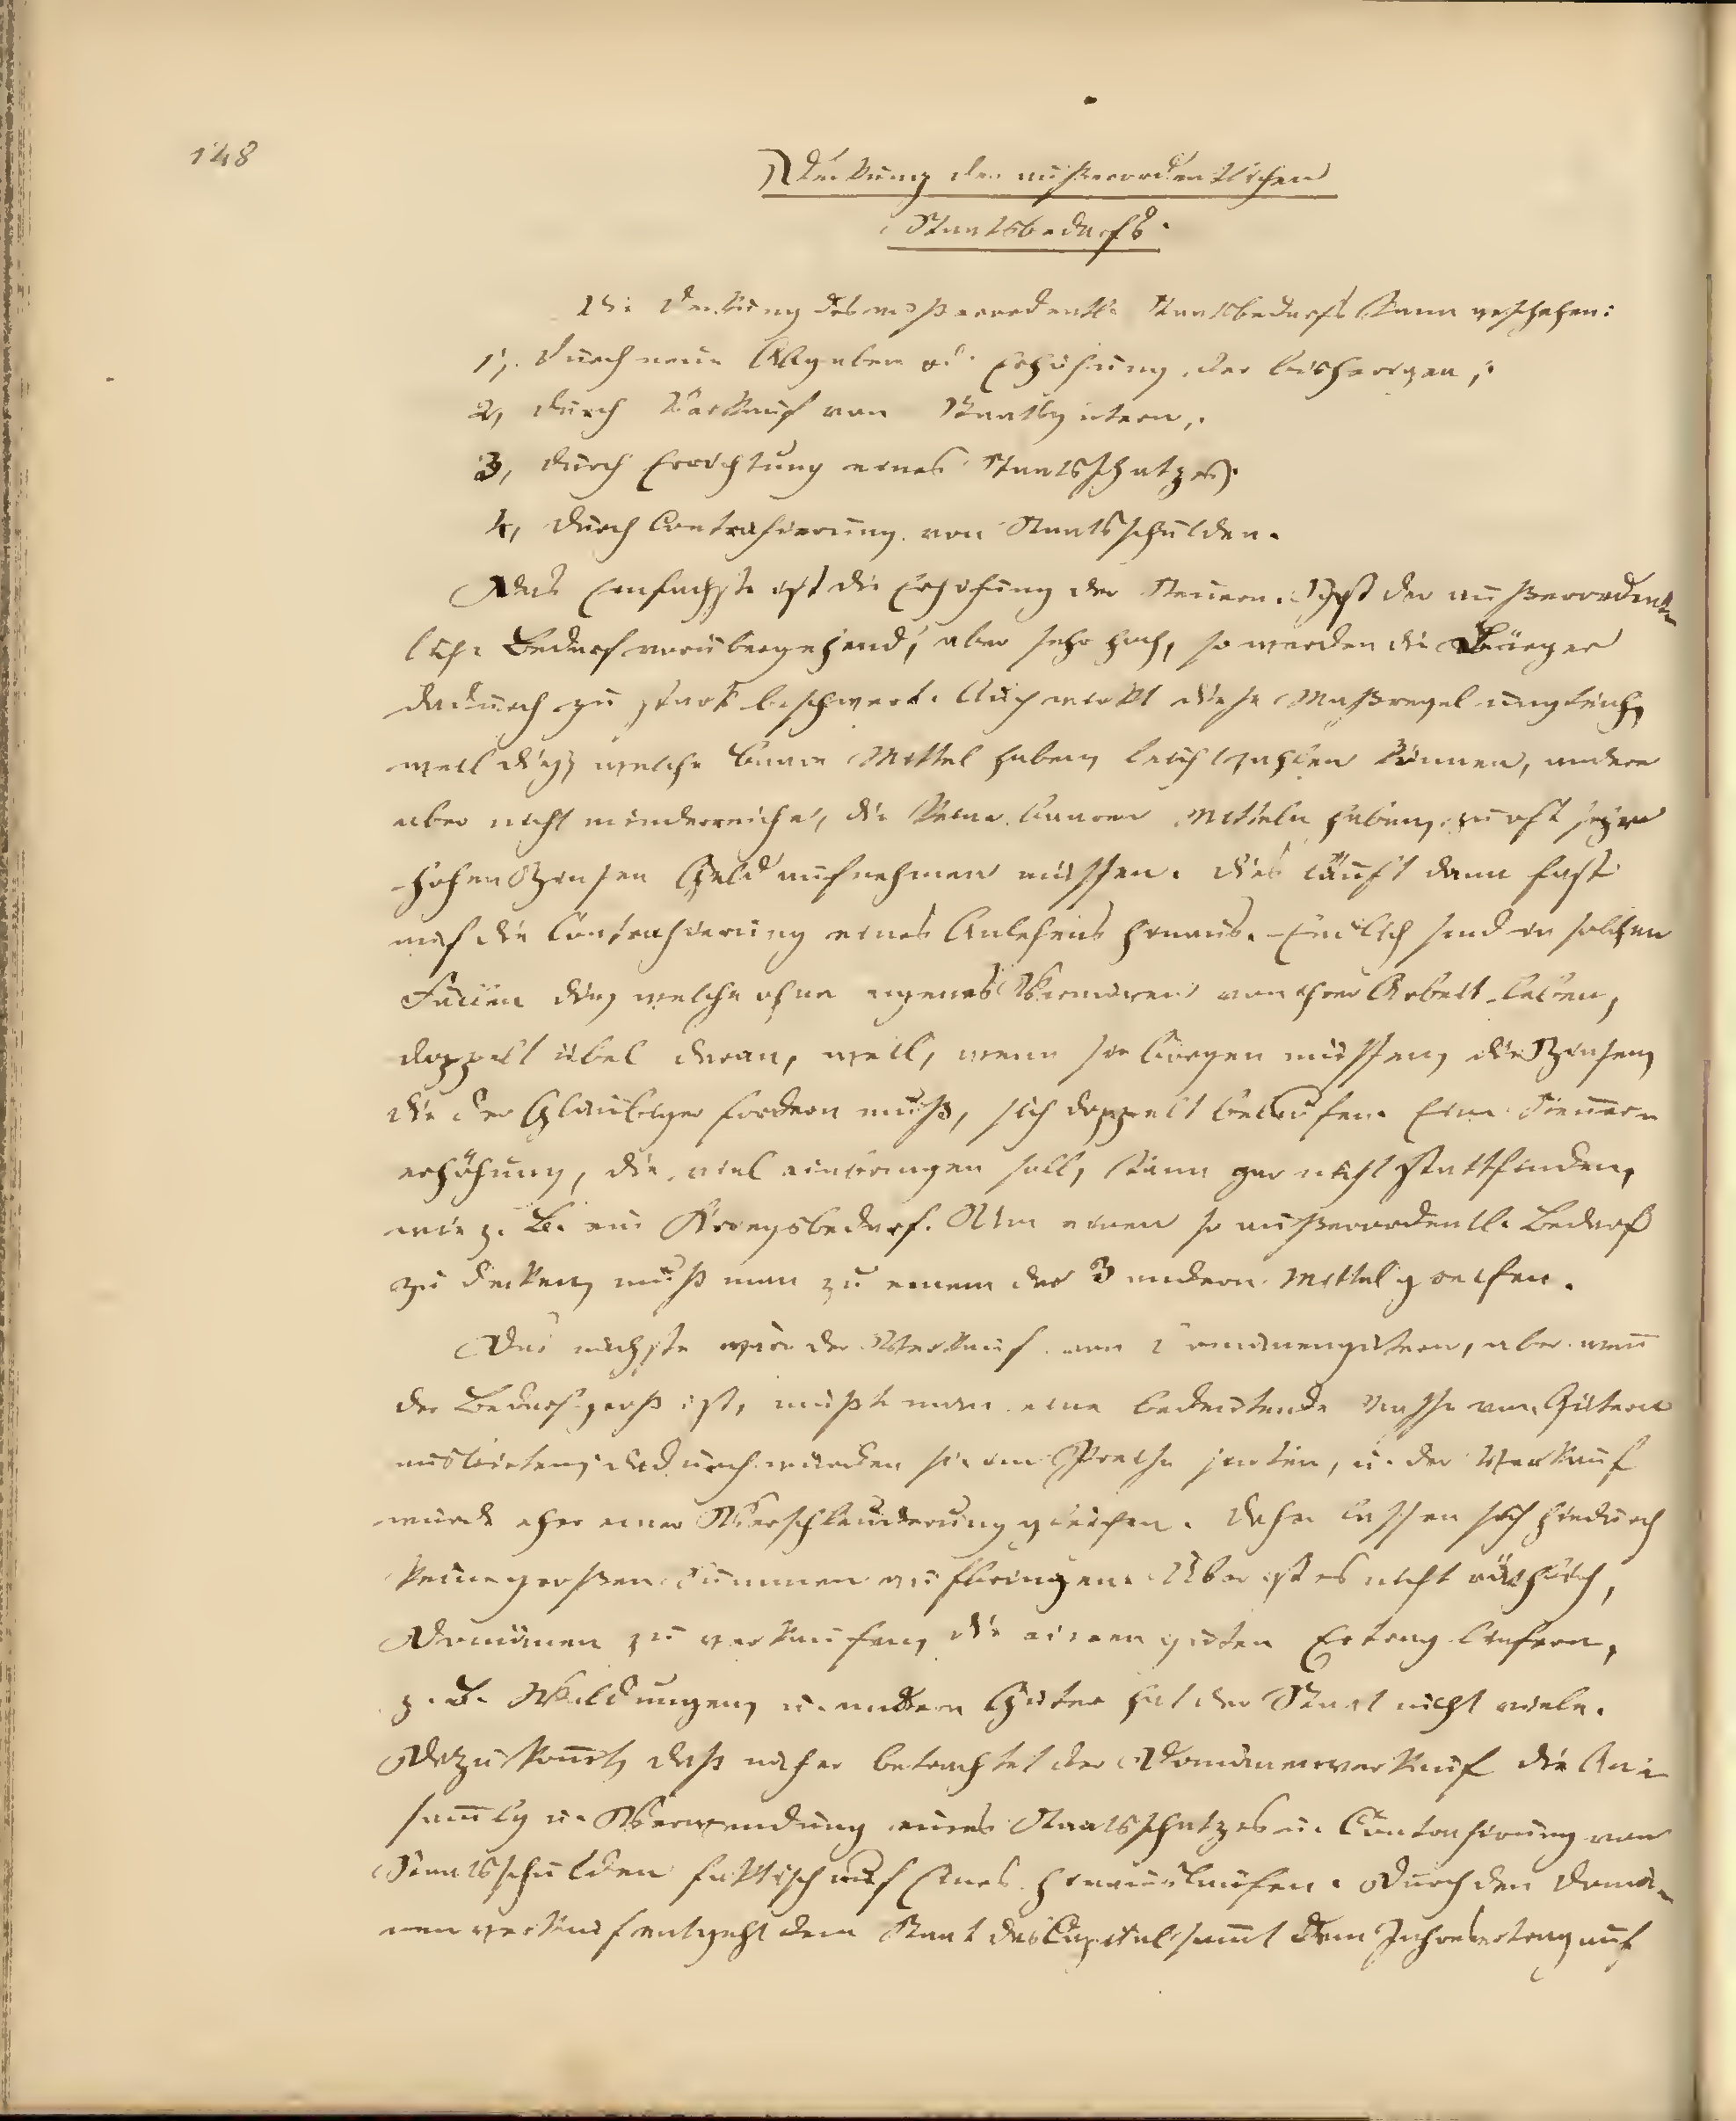 148
Deckung des außerordentlichen
Staatsbedarfs.
Die Deckung des außerordentl. Staatsbedarfs kann geschehen:
1, durch neue Abgaben od. Erhöhung der bisherigen;
2, durch Verkauf von Staatsgütern,
3, durch Errichtung eines Staatsschatzes.
4, durch Contrahierung von Staatsschulden.
Das Einfachste ist die Erhöhung der Steuern. Ist der außerordent-
liche Bedarf vorübergehend, aber sehr hoch, so werden die Bürger
dadurch zu stark beschwert. Auch wirkt diese Maßregel ungleich,
weil diej. welche baare Mittel haben, leicht zahlen können, andere
aber nicht minderreiche, die keine baaren Mitteln haben, zu oft sehr
hohen Zinsen Geld aufnehmen müssen. Dies läuft dann fast
auf die Contrahierung eines Anlehens hinaus. Endlich sind in solchen
Fällen diej. welche ohne eigenes Vermögen von ihrer Arbeit leben,
doppelt übel daran, weil, wenn sie borgen müssen, die Zinsen,
die der Gläubiger fordern muß, sich doppelt belaufen. Eine Steuer-
erhöhung, die viel einbringen soll, kann gar nicht stattfinden,
wie z. B. ein Kriegsbedarf. Um einen so außerordentl. Bedarf
zu decken, muß man zu einem der 3 andern Mittel greifen.
Das nächste wäre der Verkauf von Domänengütern, aber wenn
der Bedarf groß ist, müßte man eine bedeutende Masse von Gütern
ausbieten; dadurch würden sie im Preise sinken, u. der Verkauf
würde eher einer Verschleuderung gleichen. Daher lassen sich hiedurch
keine großen Summen aufbringen. Aber ist es nicht räthlich,
Domänen zu verkaufen, die einen guten Ertrag liefern,
z. B. Waldungen, u. andere Güter hat der Staat nicht viele.
Dazu kom̅t, daß näher betrachtet der Domänenverkauf die An-
sam̅lg u. Verwendung eines Staatsschatzes u. Contrahirung von
Staatsschulden faktisch auf Eines hinauslaufen. Durch den Domä-
nenverkauf entgeht dem Staat das Capital sam̅t dem Jahresertrag auf